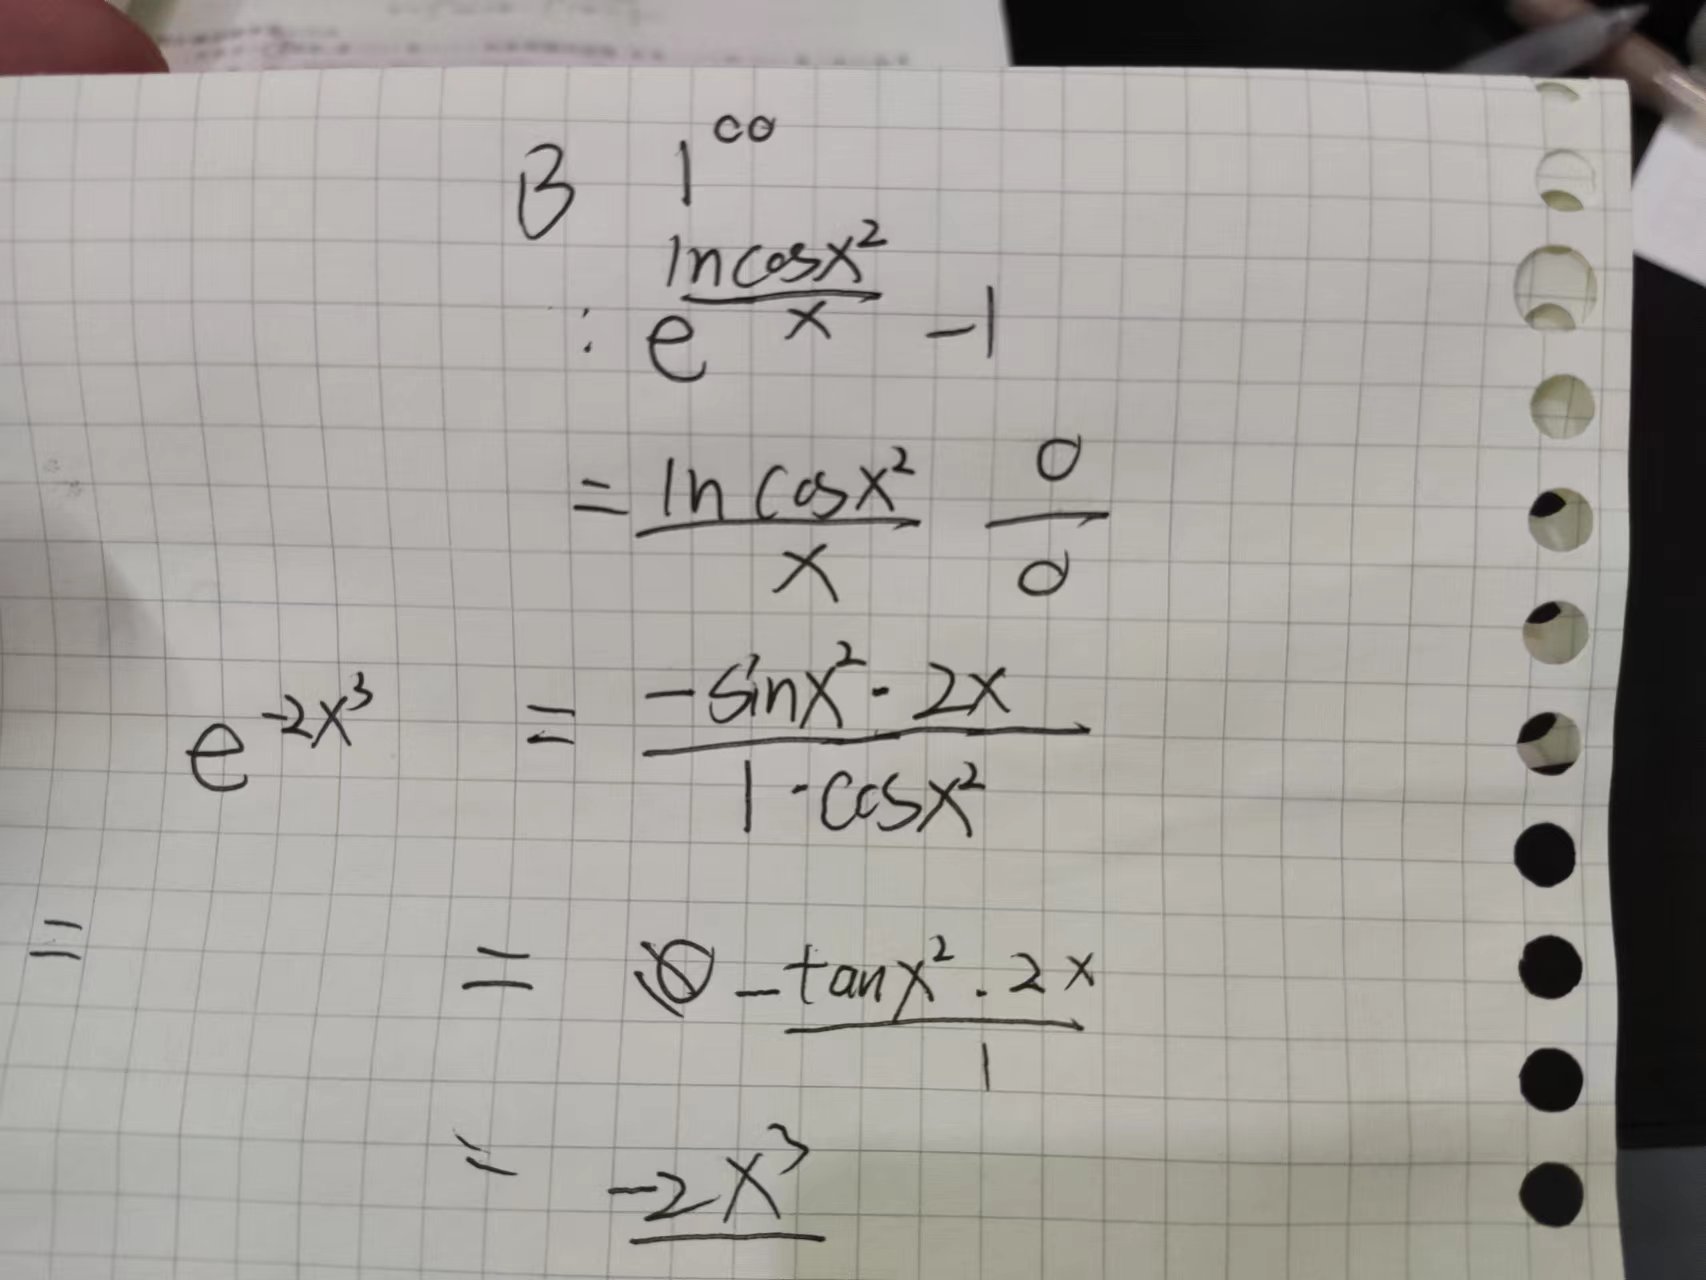 B 1^∞
: e^(ln cosx²/x) -1
= ln cosx²/x 0/0
e^(-2x³) = -sinx² · 2x / 1 · cosx²
= = -tanx² · 2x / 1
= -2x³